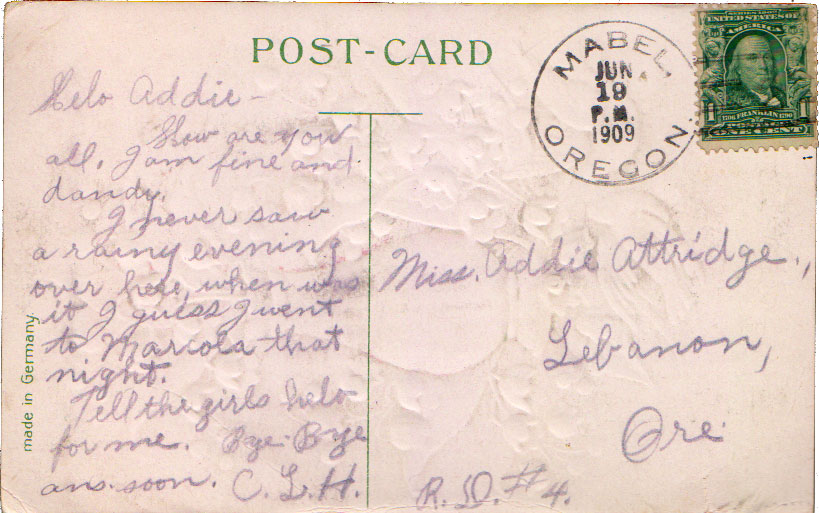 POST-CARD
MABEL,
OREGON.
JUN
19
P.M.
1909
SERIES 1902
UNITED STATES OF
AMERICA
1706 FRANKLIN 1790
POSTAGE
1 ONE CENT 1
Helo Addie -
How are you
all. I am fine and
dandy.
I never saw
a rainy evening
over here, when was
it I guess I went
to Marcola that
night.
Tell the girls helo
for me. Bye-Bye
ans. soon. C. L. H.
Miss. Addie Attridge.,
Lebanon,
Ore.
R.D. #4.
made in Germany.